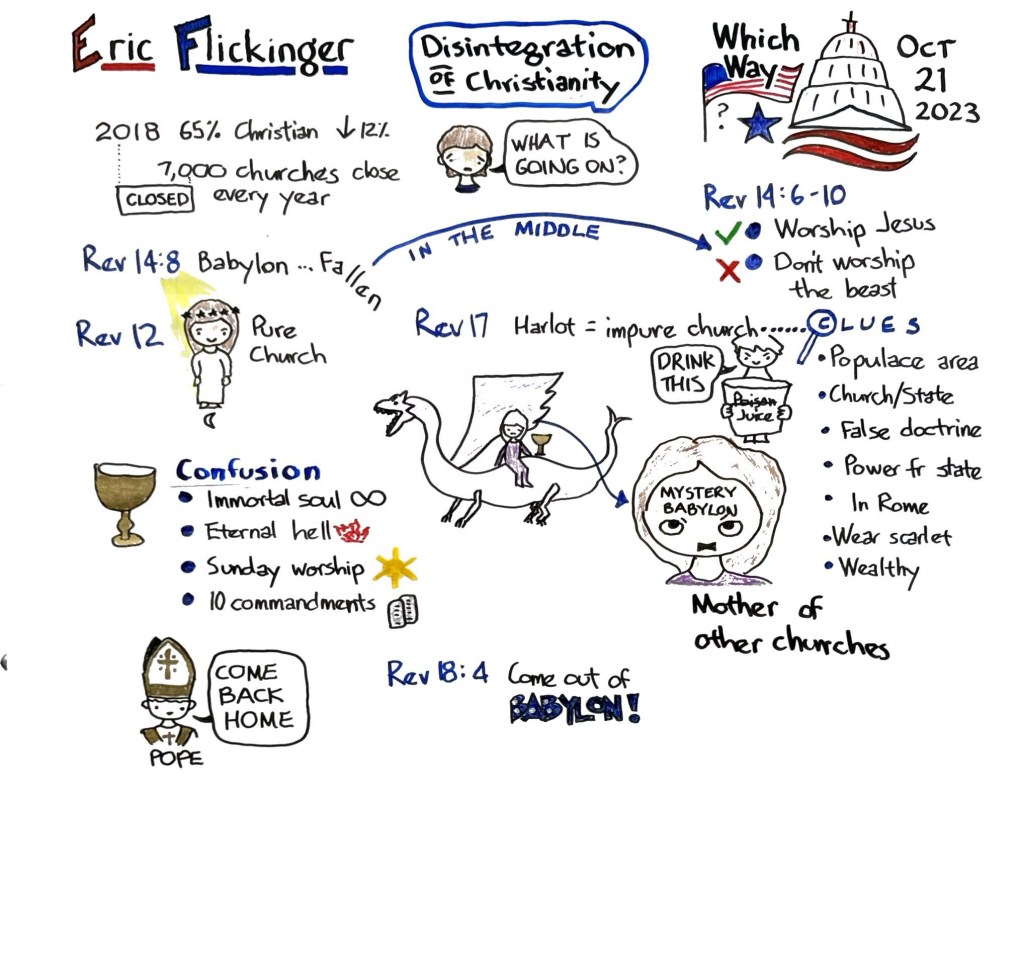 Eric Flickinger
Disintegration
OF Christianity
Which
Way
?
OCT
21
2023
2018 65% Christian ↓12%
7,000 churches close
CLOSED every year
WHAT IS
GOING ON?
Rev 14:6-10
✓ • Worship Jesus
X • Don't worship
the beast
Rev 14:8 Babylon ... Fallen
IN THE MIDDLE
Rev 12
Pure
Church
Rev 17 Harlot = impure church......CLUES
DRINK
THIS
Poison
Juice
• Populace area
• Church/State
• False doctrine
• Power fr state
• In Rome
• Wear scarlet
• Wealthy
MYSTERY
BABYLON
Mother of
other churches
Confusion
• Immortal soul ∞
• Eternal hell
• Sunday worship
• 10 commandments
COME
BACK
HOME
POPE
Rev 18:4 Come out of
BABYLON!